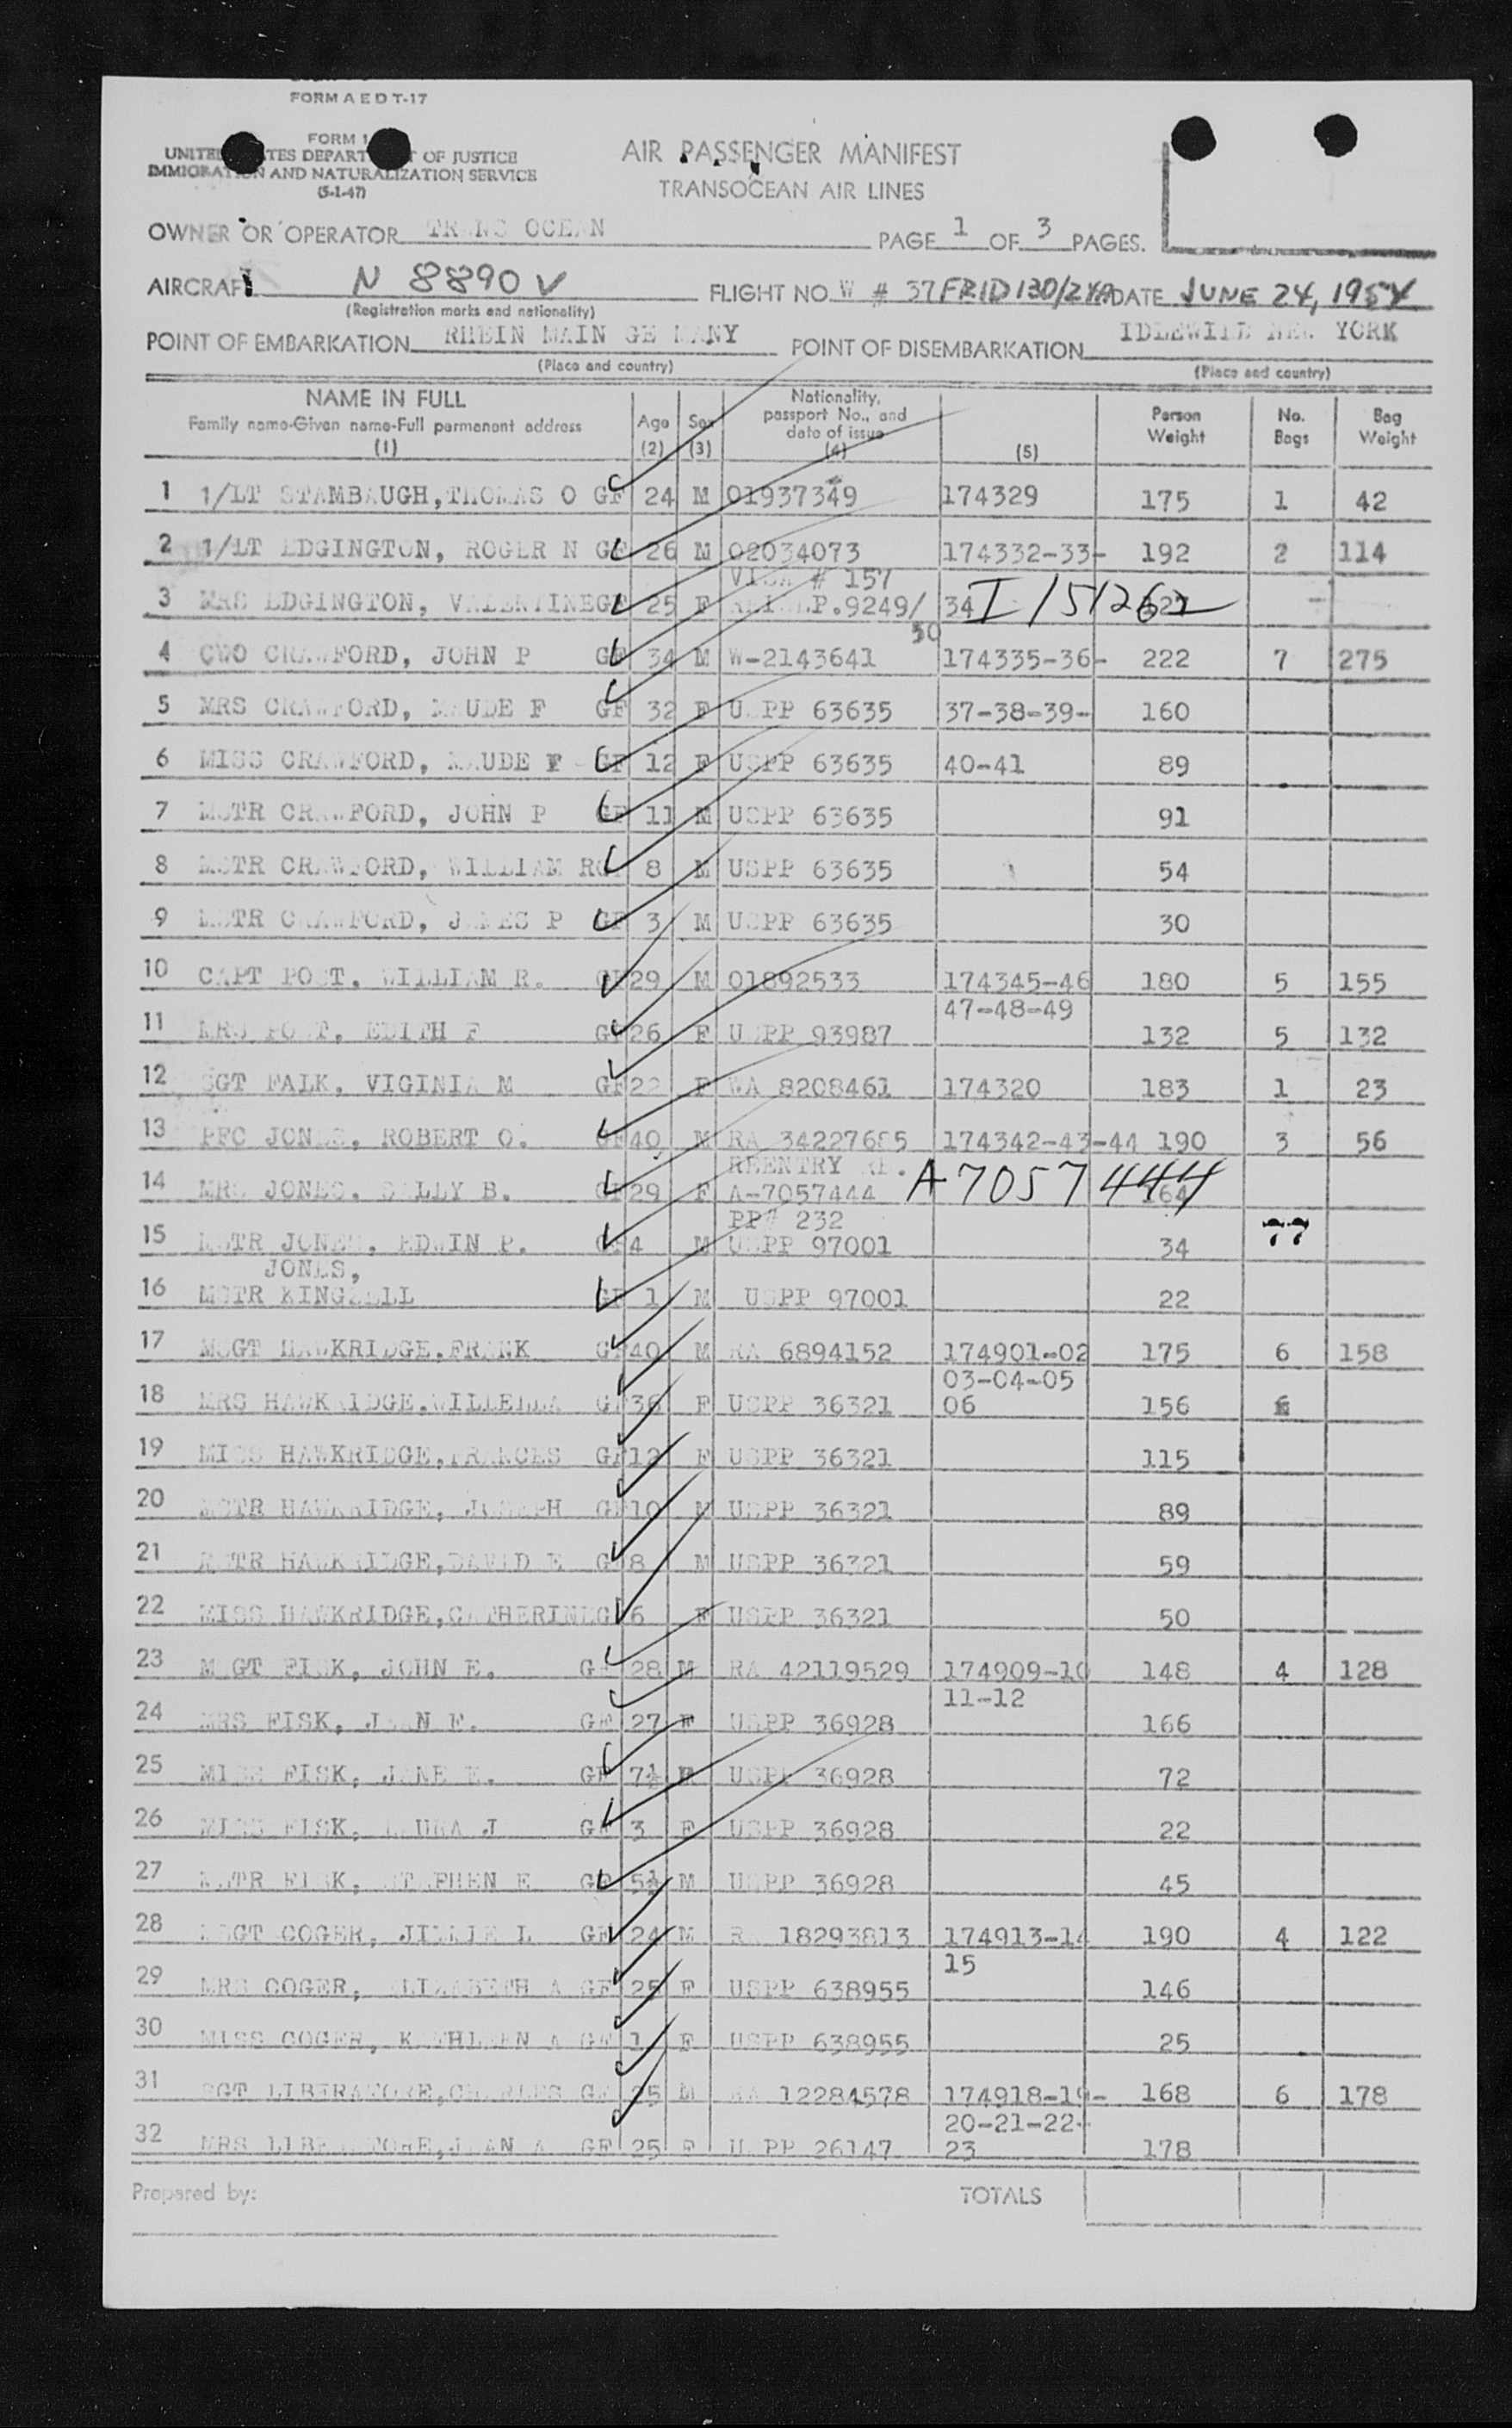 FORM A E D T-17
FORM 1
UNITED STATES DEPARTMENT OF JUSTICE
IMMIGRATION AND NATURALIZATION SERVICE
(5-1-47)
AIR PASSENGER MANIFEST
TRANSOCEAN AIR LINES
OWNER OR OPERATOR TRANS OCEAN PAGE 1 OF 3 PAGES.
AIRCRAFT N 8890 V FLIGHT NO. W # 37 DATE JUNE 24, 1954
(Registration marks and nationality)
POINT OF EMBARKATION RHEIN MAIN GERMANY POINT OF DISEMBARKATION IDLEWILD NEW YORK
(Place and country) (Place and country)
NAME IN FULL
Family name-Given name-Full permanent address
(1)
Age
(2)
Sex
(3)
Nationality,
passport No., and
date of issue
(4)
(5)
Person
Weight
No.
Bags
Bag
Weight
1 1/LT STAMBAUGH,THOMAS O GF 24 M 01937349 174329 175 1 42
2 1/LT EDGINGTON, ROGER N GF 26 M 02034073 174332-33- 192 2 114
VISA # 157
3 MRS EDGINGTON, VALENTINE GF 25 F P.9249/ 34 I 151262
50
4 CWO CRAWFORD, JOHN P GF 34 M W-2143641 174335-36- 222 7 275
5 MRS CRAWFORD, MAUDE F GF 32 F USPP 63635 37-38-39- 160
6 MISS CRAWFORD, MAUDE F GF 12 F USPP 63635 40-41 89
7 MSTR CRAWFORD, JOHN P GF 11 M USPP 63635 91
8 MSTR CRAWFORD, WILLIAM R GF 8 M USPP 63635 54
9 MSTR CRAWFORD, JAMES P GF 3 M USPP 63635 30
10 CAPT POST. WILLIAM R. GF 29 M 01892533 174345-46 180 5 155
47-48-49
11 MRS POST, EDITH F GF 26 F USPP 93987 132 5 132
12 SGT FALK, VIGINIA M GF 22 F WA 8208461 174320 183 1 23
13 PFC JONES, ROBERT O. GF 40 M RA 34227685 174342-43-44 190 3 56
REENTRY
14 MRS JONES. SALLY B. GF 29 F A-7057444 A7057444 164
PP# 232
15 MSTR JONES, EDWIN P. GF 4 M USPP 97001 34 77
JONES,
16 MSTR KINGZELL GF 1 M USPP 97001 22
17 MSGT HAWKRIDGE.FRANK GF 40 M RA 6894152 174901-02 175 6 158
03-04-05
18 MRS HAWKRIDGE.WILLELLA GF 36 F USPP 36321 06 156 6
19 MISS HAWKRIDGE,FRANCES GF 12 F USPP 36321 115
20 MSTR HAWKRIDGE, JOSEPH GF 10 M USPP 36321 89
21 MSTR HAWKRIDGE,DAVID E GF 8 M USPP 36321 59
22 MISS HAWKRIDGE,CATHERINE GF 6 F USPP 36321 50
23 MSGT FISK, JOHN E. GF 28 M RA 42119529 174909-10 148 4 128
11-12
24 MRS FISK, JEAN F. GF 27 F USPP 36928 166
25 MISS FISK, JANE E. GF 7½ F USPP 36928 72
26 MISS FISK, LAURA J GF 3 F USPP 36928 22
27 MSTR FISK, STEPHEN E GF 5½ M USPP 36928 45
28 MSGT COGER, JILLIE L GF 24 M RA 18293813 174913-14 190 4 122
15
29 MRS COGER, ELIZABETH A GF 25 F USPP 638955 146
30 MISS COGER, KATHLEEN A GF 1 F USPP 638955 25
31 SGT LIBERATORE,CHARLES GF 25 M RA 12284578 174918-19- 168 6 178
20-21-22-
32 MRS LIBERATORE,JEAN A GF 25 F USPP 26147 23 178
Prepared by: TOTALS